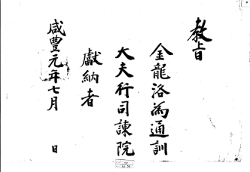 敎旨
金龍洛為通訓
大夫行司諫院
獻納者
咸豐元年七月　日